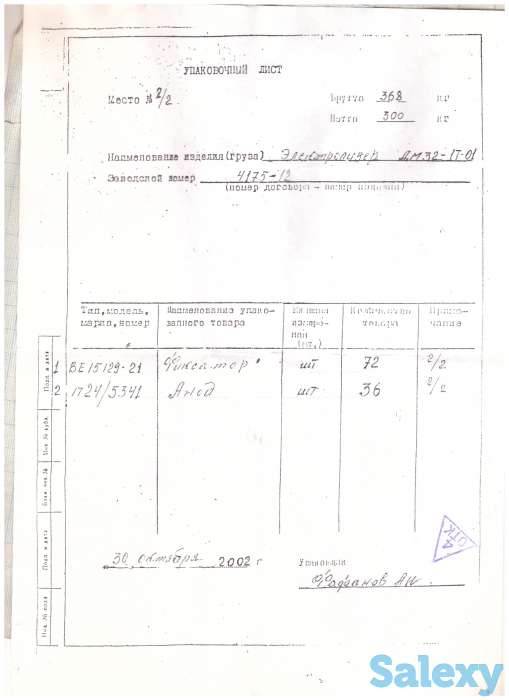 УПАКОВОЧНЫЙ ЛИСТ
Место № 2/2
Брутто 368 кг
Нетто 300 кг
Наименование изделия (груза) Электролизер
Заводской номер 4175-12
(номер договора - номер изделия)
Тип, модель, марка, номер
Наименование упако-
ванного товара
Единица
измере-
ния
(шт.)
Количество
товара
Приме-
чание
1 ВЕ15129-21 Фиксатор шт 72 2/2
2 1724/5341 Анод шт 36 2/2
Подп. и дата
Инв. № дубл.
Взам. инв. №
Подп. и дата
Инв. № подл
ОТК
4
30 октября 2002 г
Упаковщик
Salexy